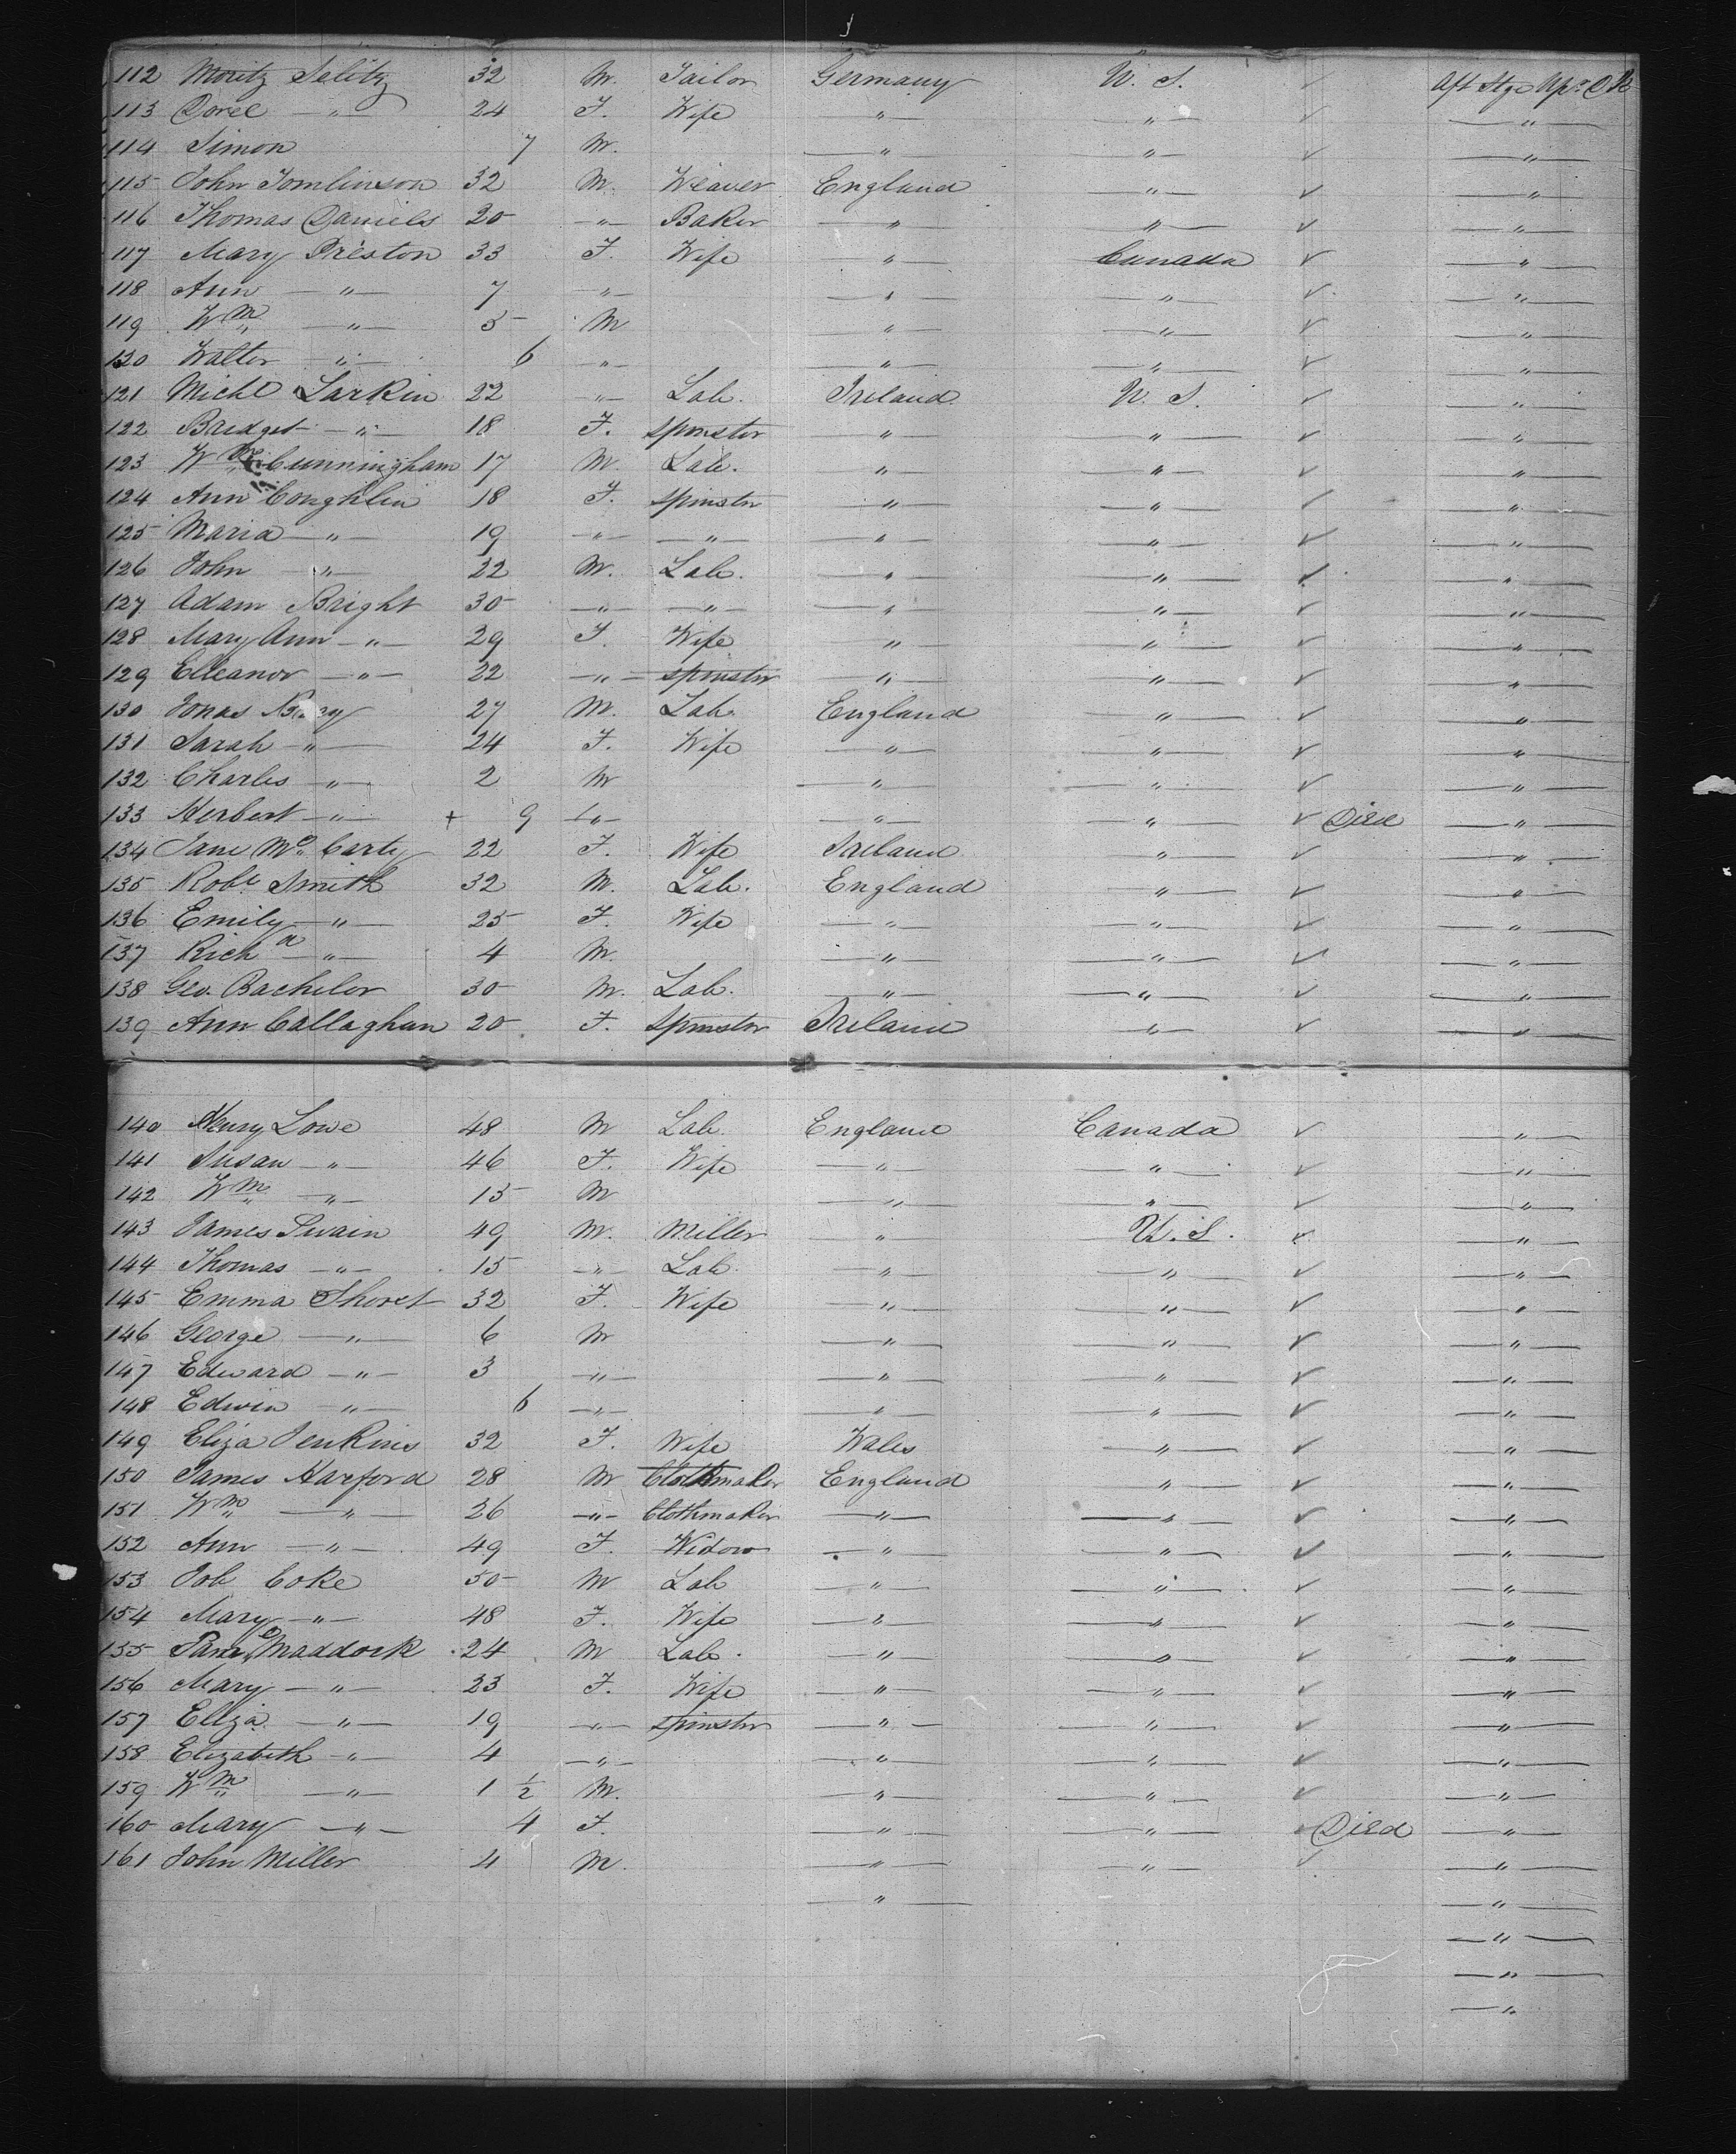 112 Moritz Selitz 32 M. Tailor Germany U. S. ✓ Aft Stge Upr Dk
113 Doree " 24 F. Wife " " ✓ "
114 Simon 7 M. " " ✓ "
115 John Tomlinson 32 M. Weaver England " ✓ "
116 Thomas Daniels 20 " Baker " " ✓ "
117 Mary Preston 33 F. Wife " Canada ✓ "
118 Ann " 7 " " " ✓ "
119 Wm " 5 M " " ✓ "
120 Walter " 6 " " " ✓ "
121 Michl Larkin 22 " Lab. Ireland U. S. ✓ "
122 Bridget " 18 F. Spinster " " ✓ "
123 Wm Cunningham 17 M. Lab. " " ✓ "
124 Ann Coughlin 18 F. Spinstr " " ✓ "
125 Maria " 19 " " " " ✓ "
126 John " 22 M. Lab. " " ✓ "
127 Adam Bright 30 " " " " ✓ "
128 Mary Ann " 29 F. Wife " " ✓ "
129 Elleanor " 22 " Spinstr " " ✓ "
130 Jonas 27 M. Lab. England " ✓ "
131 Sarah " 24 F. Wife " " ✓ "
132 Charles " 2 M " " ✓ "
133 Herbert " + 9 " " " ✓ Died "
134 Jane Mc Carty 22 F. Wife Ireland " ✓ "
135 Robt Smith 32 M. Lab. England " ✓ "
136 Emily " 25 F. Wife " " ✓ "
137 Richd " 4 M. " " ✓ "
138 Geo. Bachelor 30 M. Lab. " " ✓ "
139 Ann Callaghan 20 F. Spinster Ireland " ✓ "
140 Henry Lowe 48 M Lab. England Canada ✓ "
141 Susan " 46 F. Wife " " ✓ "
142 Wm " 15 M " " ✓ "
143 James Swain 49 M. Miller " U. S. ✓ "
144 Thomas " 15 " Lab. " " ✓ "
145 Emma Shoret 32 F. Wife " " ✓ "
146 George " 6 M " " ✓ "
147 Edward " 3 " " " ✓ "
148 Edwin " 6 " " " ✓ "
149 Eliza Jenkins 32 F. Wife Wales " ✓ "
150 James Harford 28 M Clothmaker England " ✓ "
151 Wm " 26 " Clothmaker " " ✓ "
152 Ann " 49 F. Widow " " ✓ "
153 Job Coke 50 M Lab " " ✓ "
154 Mary " 48 F. Wife " " ✓ "
155 Maddock 24 M Lab. " " ✓ "
156 Mary " 23 F. Wife " " ✓ "
157 Eliza " 19 " Spinstr " " ✓ "
158 Elizabeth " 4 " " " ✓ "
159 Wm " 1 1/2 M. " " ✓ "
160 Mary " 4 F. " " ✓ Died "
161 John Miller 4 M. " " ✓ "
" "
"
"
"